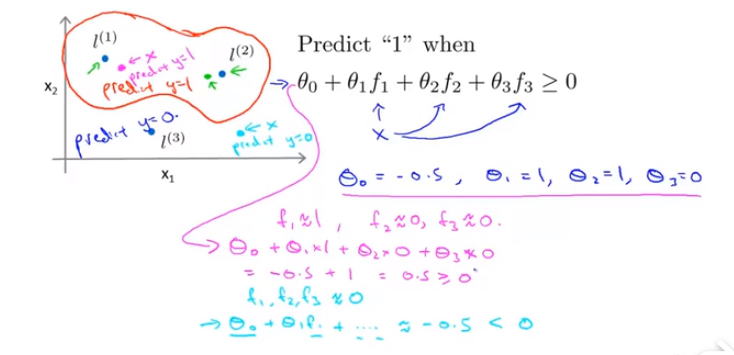 l⁽¹⁾
← x
predict y=1
l⁽²⁾
←
predict y=1
x₂
predict y=0.
l⁽³⁾
← x
predict y=0
x₁
Predict “1” when
→ θ₀ + θ₁f₁ + θ₂f₂ + θ₃f₃ ≥ 0
x
θ₀ = -0.5 , θ₁ = 1, θ₂ = 1, θ₃ = 0
f₁ ≈ 1 , f₂ ≈ 0, f₃ ≈ 0.
→ θ₀ + θ₁ × 1 + θ₂ × 0 + θ₃ × 0
= -0.5 + 1 = 0.5 ≥ 0
f₁, f₂, f₃ ≈ 0
→ θ₀ + θ₁f₁ + .... ≈ -0.5 < 0